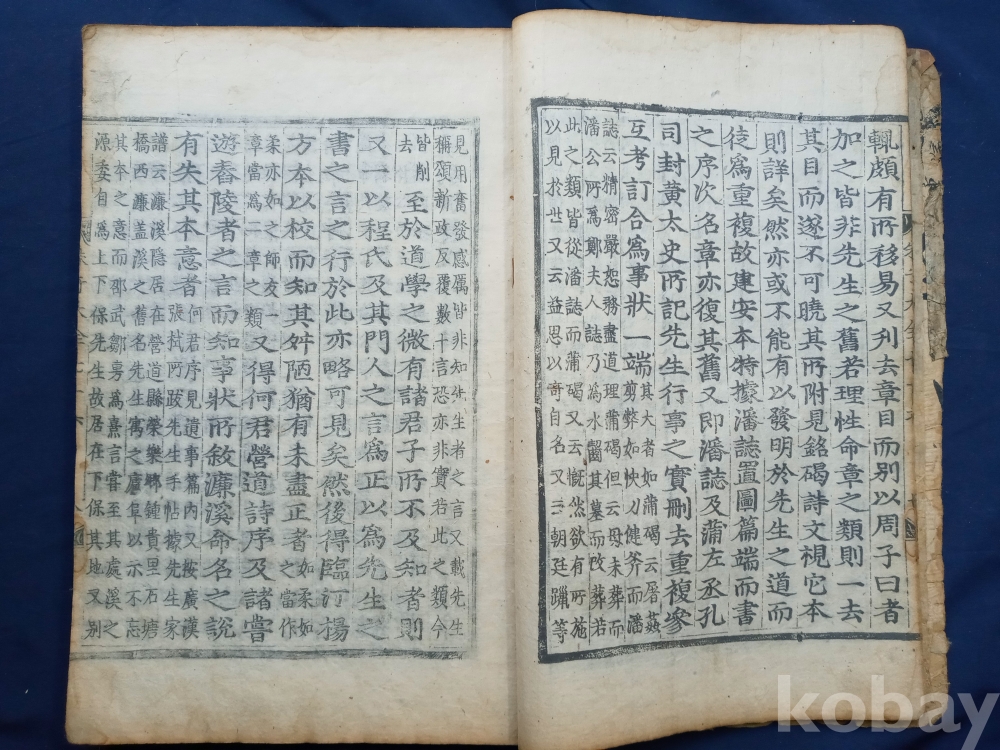 輒頗有所移易又刋去章目而別以周子曰者
加之皆非先生之舊若理性命章之類則一去
其目而遂不可曉其所附見銘碣詩文視它本
則詳矣然亦或不能有以發明於先生之道而
徒爲重複故建安本特據潘誌置圖篇端而書
之序次名章亦復其舊又即潘誌及蒲左丞孔
司封黄太史所記先生行事之實刪去重複參
互考訂合爲事狀一端
其大者如蒲碣云屠姦
剪弊如快刀健斧而潘
誌云精密嚴恕務盡道理蒲碣但云母未葬而
潘公所爲鄭夫人誌乃爲水齧其墓而改葬若
此之類皆從潘誌而蒲碣又云慨然欲有所施
以見於世又云益思以奇自名又云朝廷躐等
見用奮發感厲皆非知先生者之言又載先生
稱頌新政反覆數十言恐亦非實若此之類今
皆削
去
至於道學之微有諸君子所不及知者則
又一以程氏及其門人之言爲正以爲先生之
書之言之行於此亦略可見矣然後得臨汀楊
方本以校而知其舛陋猶有未盡正者
如柔如
之當作
柔亦如之師友一
章當爲二章之
類又得何君營道詩序及諸嘗
遊舂陵者之言而知事狀所敘濂溪命名之說
有失其本意者
何君序見遺事篇內又按廣漢
張栻所跋先生手帖據先生家
譜云濂溪隱居在營道縣榮樂鄉鍾貴里石塘
橋西濂蓋溪之舊名先生寓之廬阜以示不忘
其本之意而邵武鄒旉爲熹言嘗至其處溪之
源委自爲上下保先生故居在下保其地又別
kobay